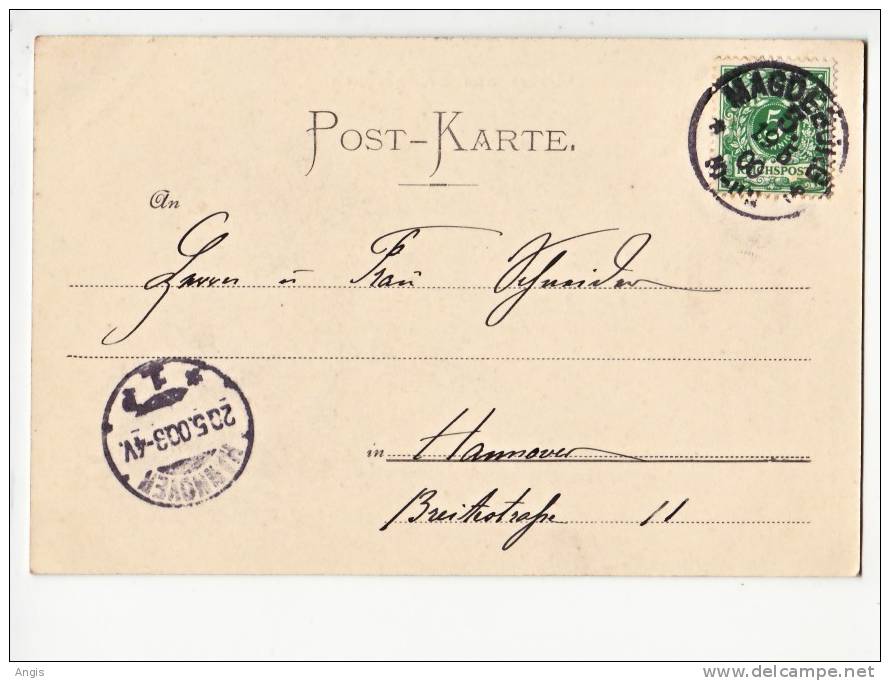 MAGDEBURG
5
19 5
00
REICHSPOST
POST-KARTE.
An
Herrn u Frau Schneider
in Hannover
Breitestraße 11
HANNOVER
20.5.00.3-4V.
1
Angis
delcampe.net